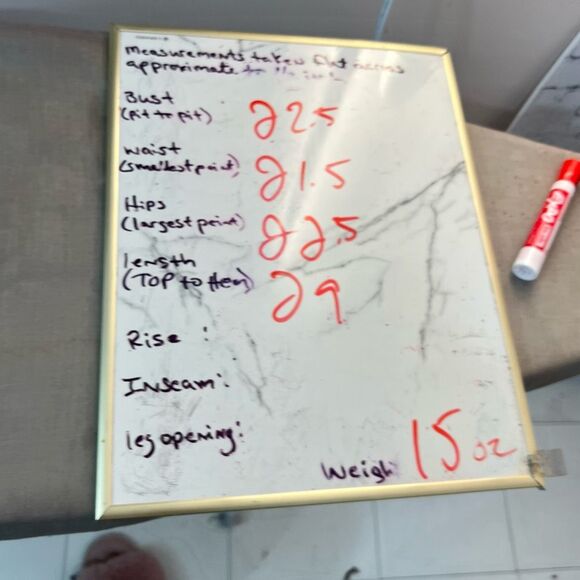 measurements taken flat across
approximate to
Bust
(pit to pit) 22.5
waist
(smallest point) 21.5
Hips
(largest point) 22.5
length
(TOP to Hem) 29
Rise :
Inseam:
leg opening:
Weigh 15 oz
EXPO